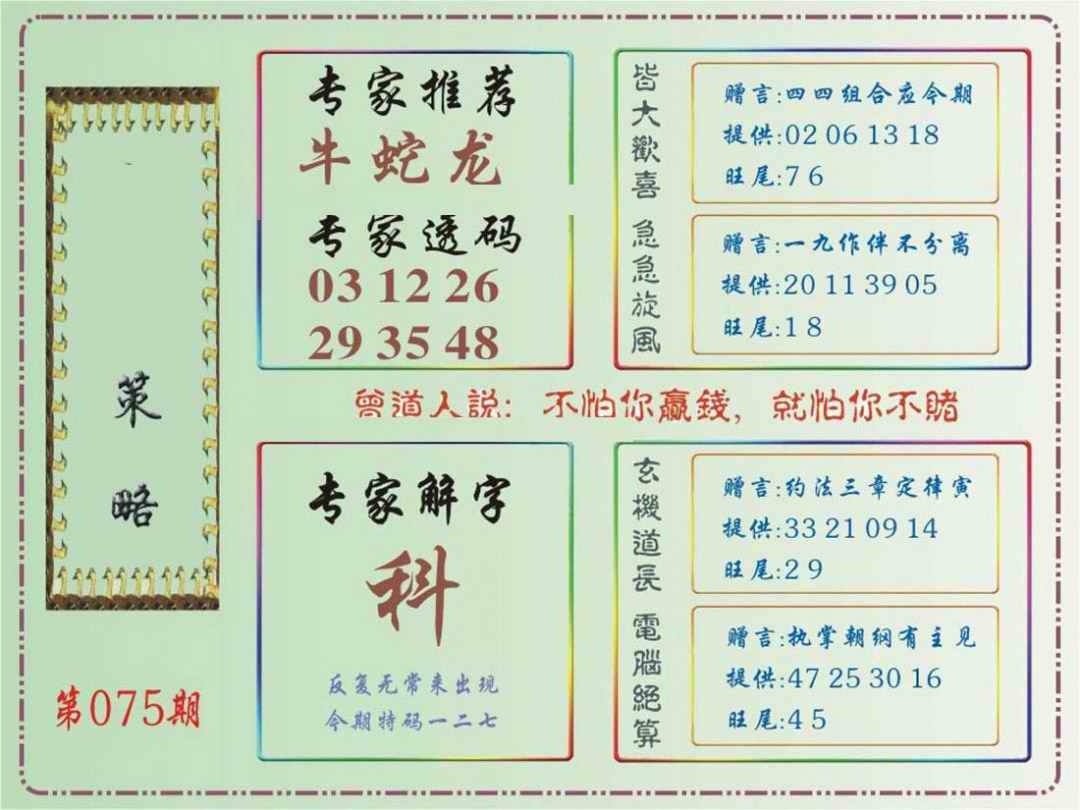 策略
第075期
专家推荐
牛蛇龙
专家透码
03 12 26
29 35 48
皆大歡喜
赠言:四四组合应今期
提供:02 06 13 18
旺尾:7 6
急急旋風
赠言:一九作伴不分离
提供:20 11 39 05
旺尾:1 8
曾道人説: 不怕你赢錢, 就怕你不賭
专家解字
科
反复无常来出现
今期特码一二七
玄機道長
赠言:约法三章定律寅
提供:33 21 09 14
旺尾:2 9
電腦絕算
赠言:执掌朝纲有主见
提供:47 25 30 16
旺尾:4 5